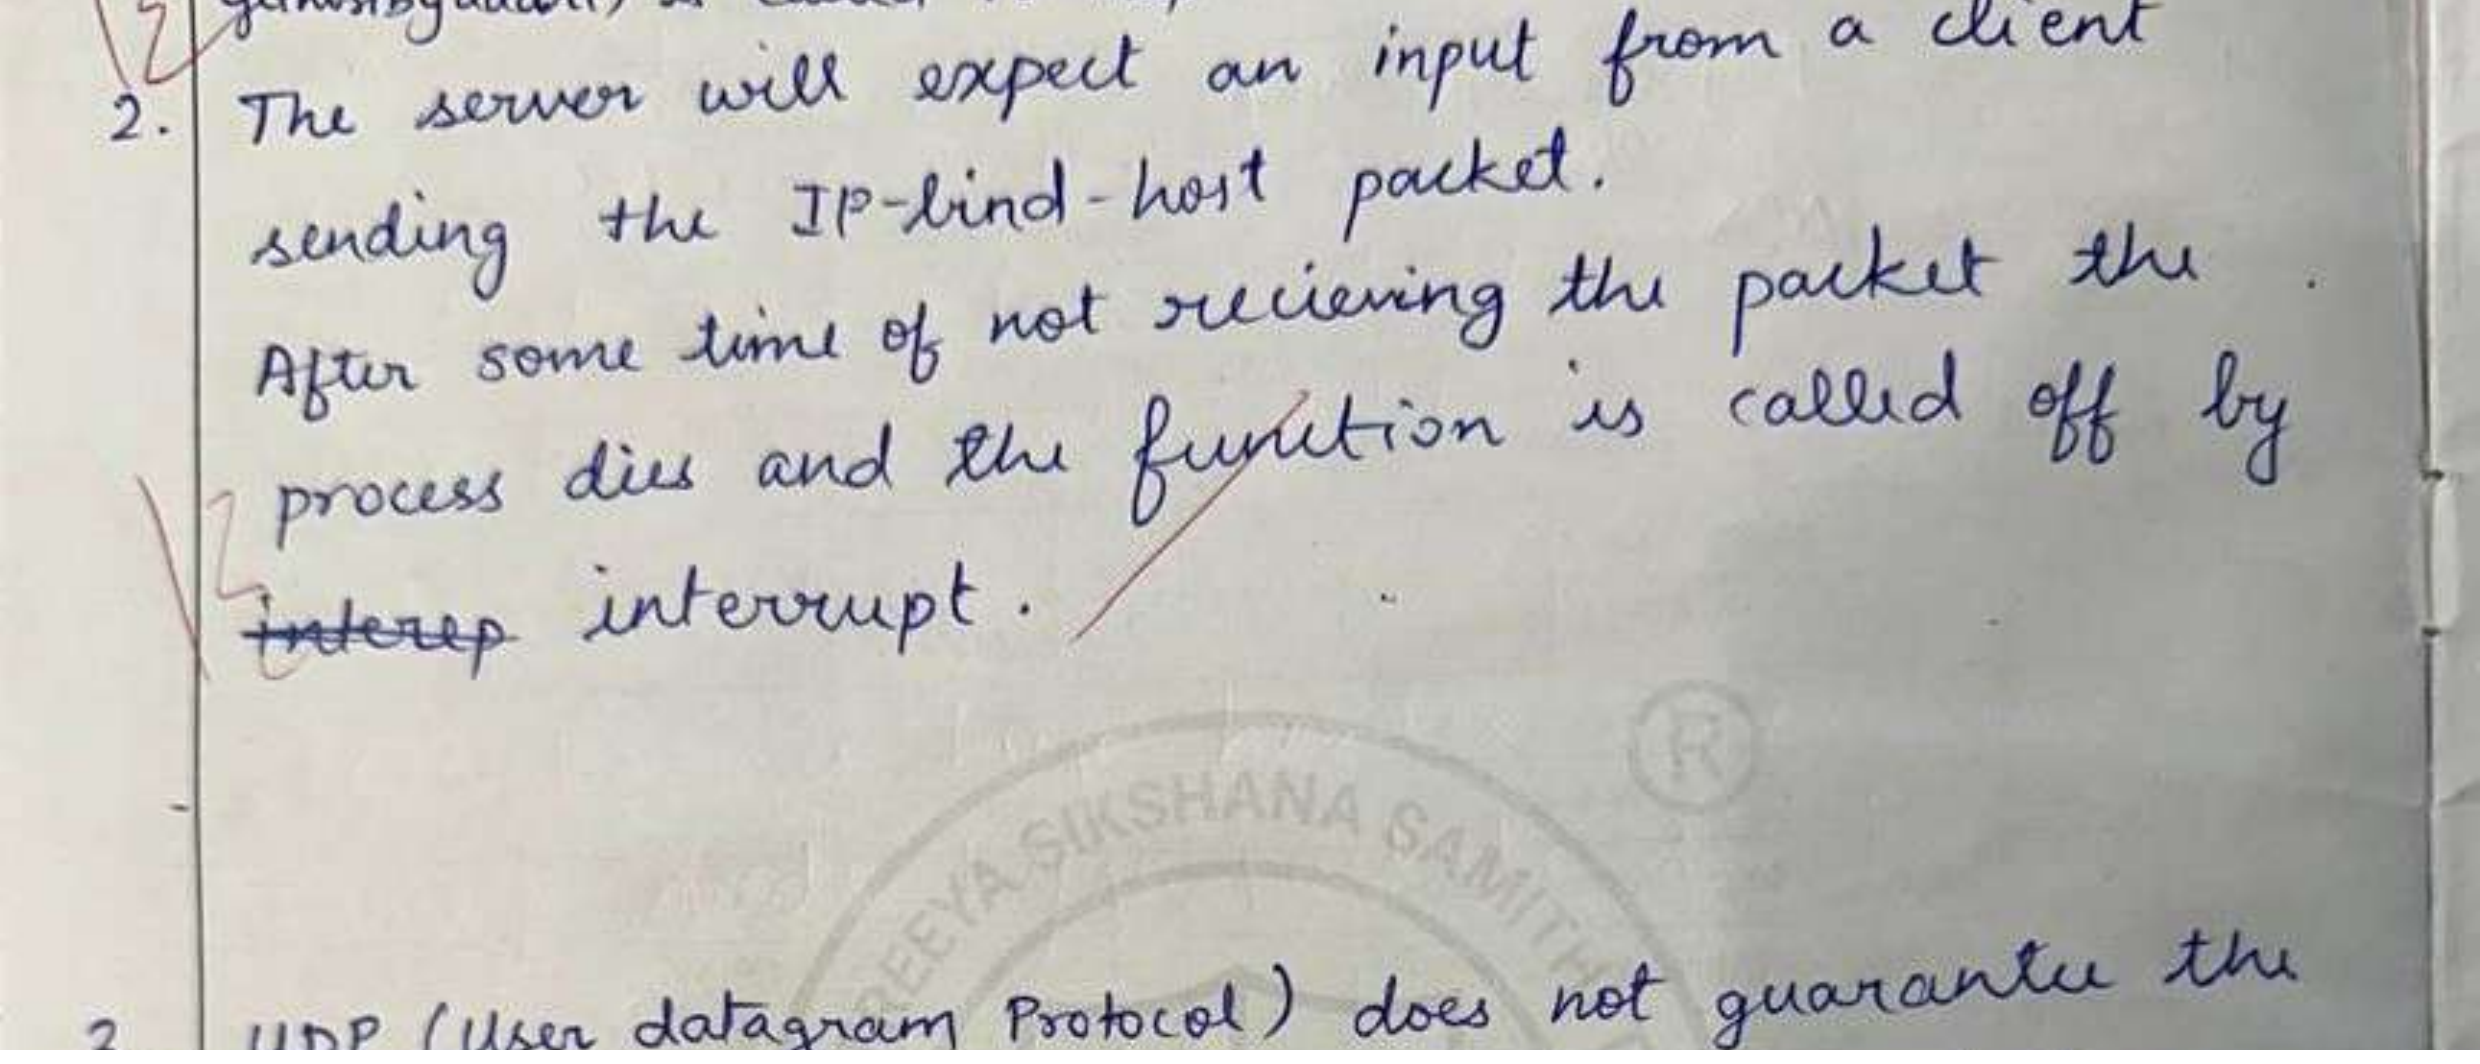 2. The server will expect an input from a client
sending the IP-bind-host packet.
After some time of not recieving the packet the
process dies and the function is called off by
interep interrupt.
REEYA SIKSHANA SAMITH
R
UDP (User datagram Protocol) does not guarantee the